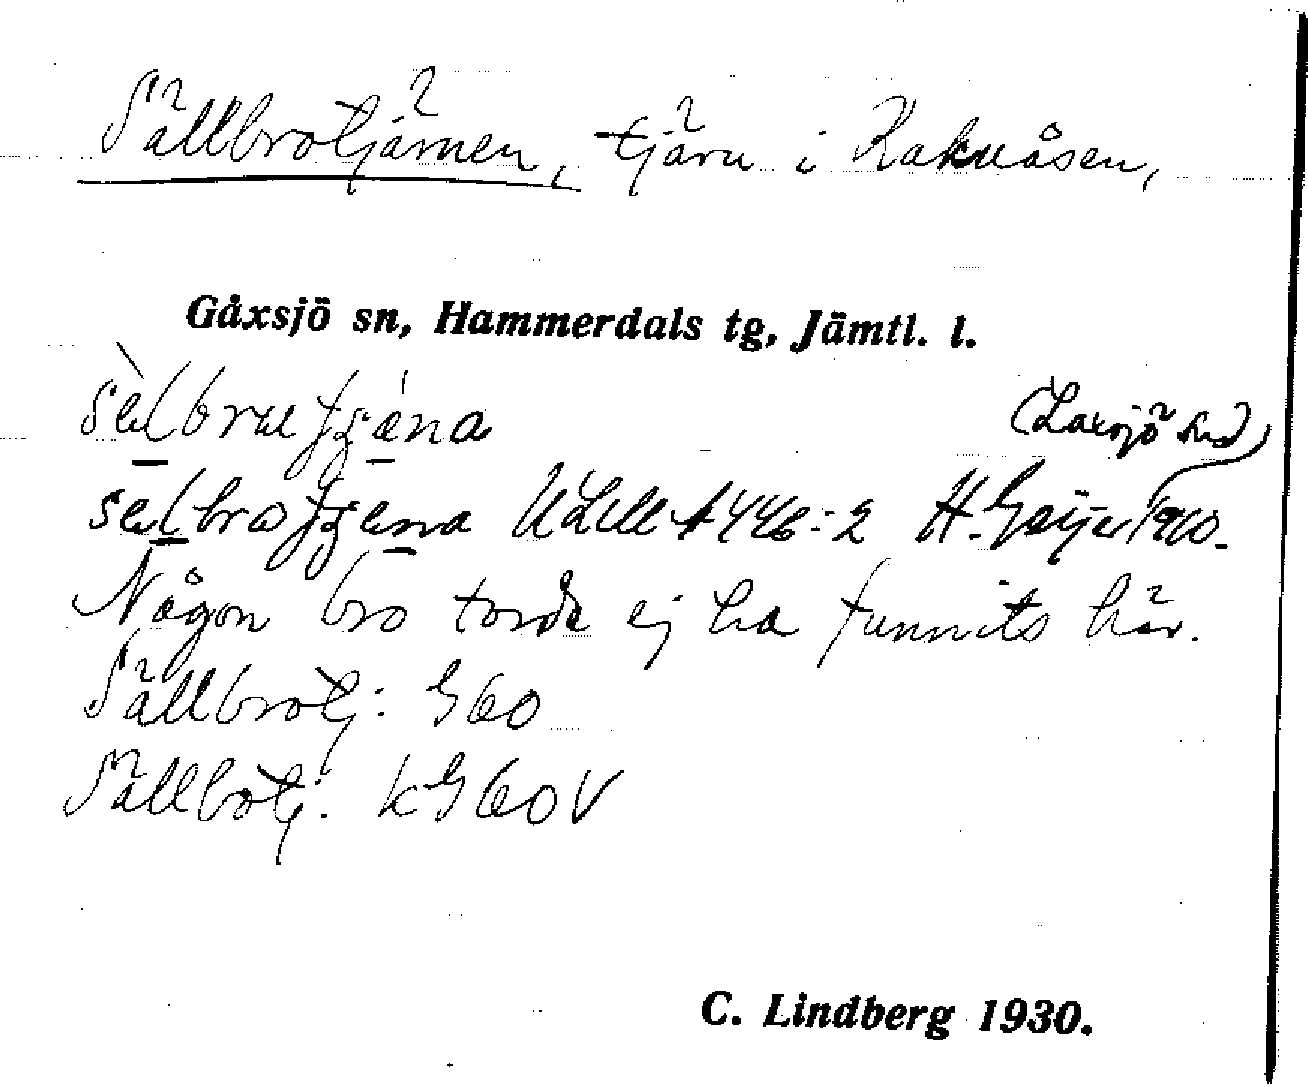 Sällbrotjärnen, tjärn i Raknåsen,
Gåxsjö sn, Hammerdals tg, Jämtl. l.
(Laxsjö sn)
ULMA 446:2 H. Geijer 1910.
Någon bro torde ej ha funnits här.
Sällbrotj: G60
Sällbotj. kG60V
C. Lindberg 1930.